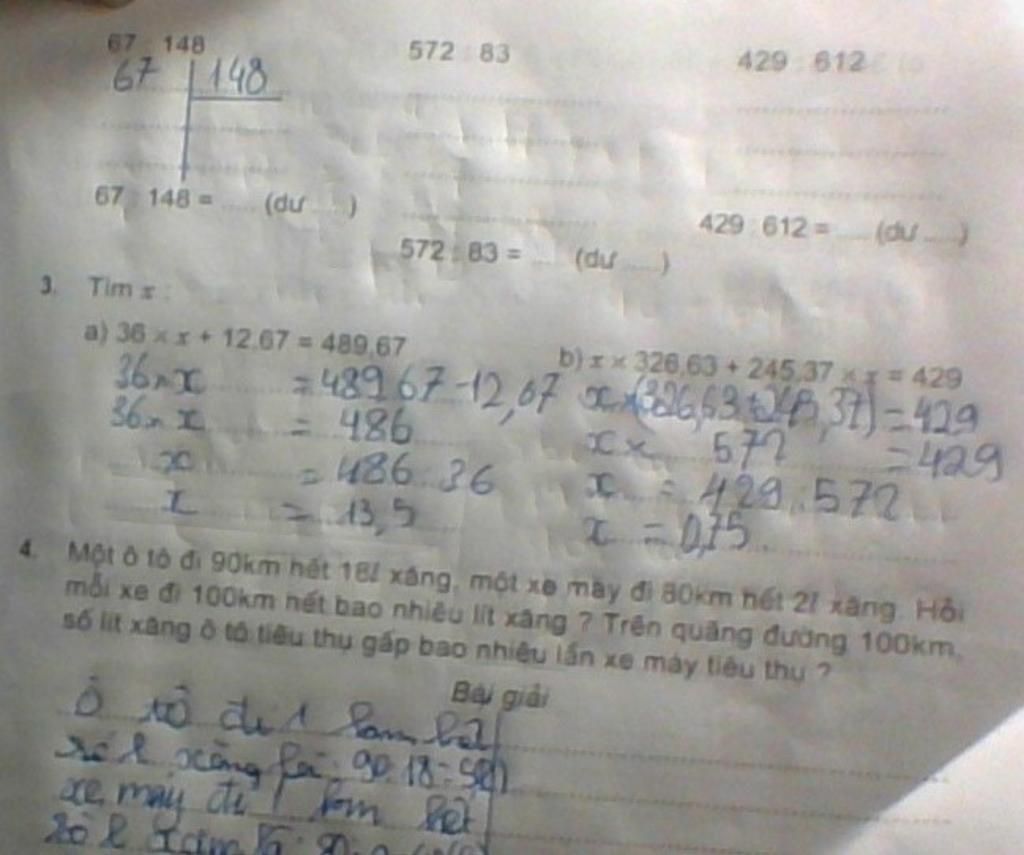 67 : 148
572 : 83
429 : 612
67 148
67 : 148 = ..... (dư ..... )
572 : 83 = ..... (dư ..... )
429 : 612 = ..... (dư ..... )
3. Tìm x :
a) 36 × x + 12,67 = 489,67
36 × x = 489,67 - 12,67
36 × x = 486
x = 486 : 36
x = 13,5
b) x × 326,63 + 245,37 × x = 429
x × (326,63 + 245,37) = 429
x × 572 = 429
x = 429 : 572
x = 0,75
4. Một ô tô đi 90km hết 18l xăng, một xe máy đi 80km hết 2l xăng. Hỏi
mỗi xe đi 100km hết bao nhiêu lít xăng ? Trên quãng đường 100km,
số lít xăng ô tô tiêu thụ gấp bao nhiêu lần xe máy tiêu thụ ?
Bài giải
Ô tô đi 1 km hết
số l xăng là: 90 : 18 =
xe máy đi 1 km hết
số l xăng là: